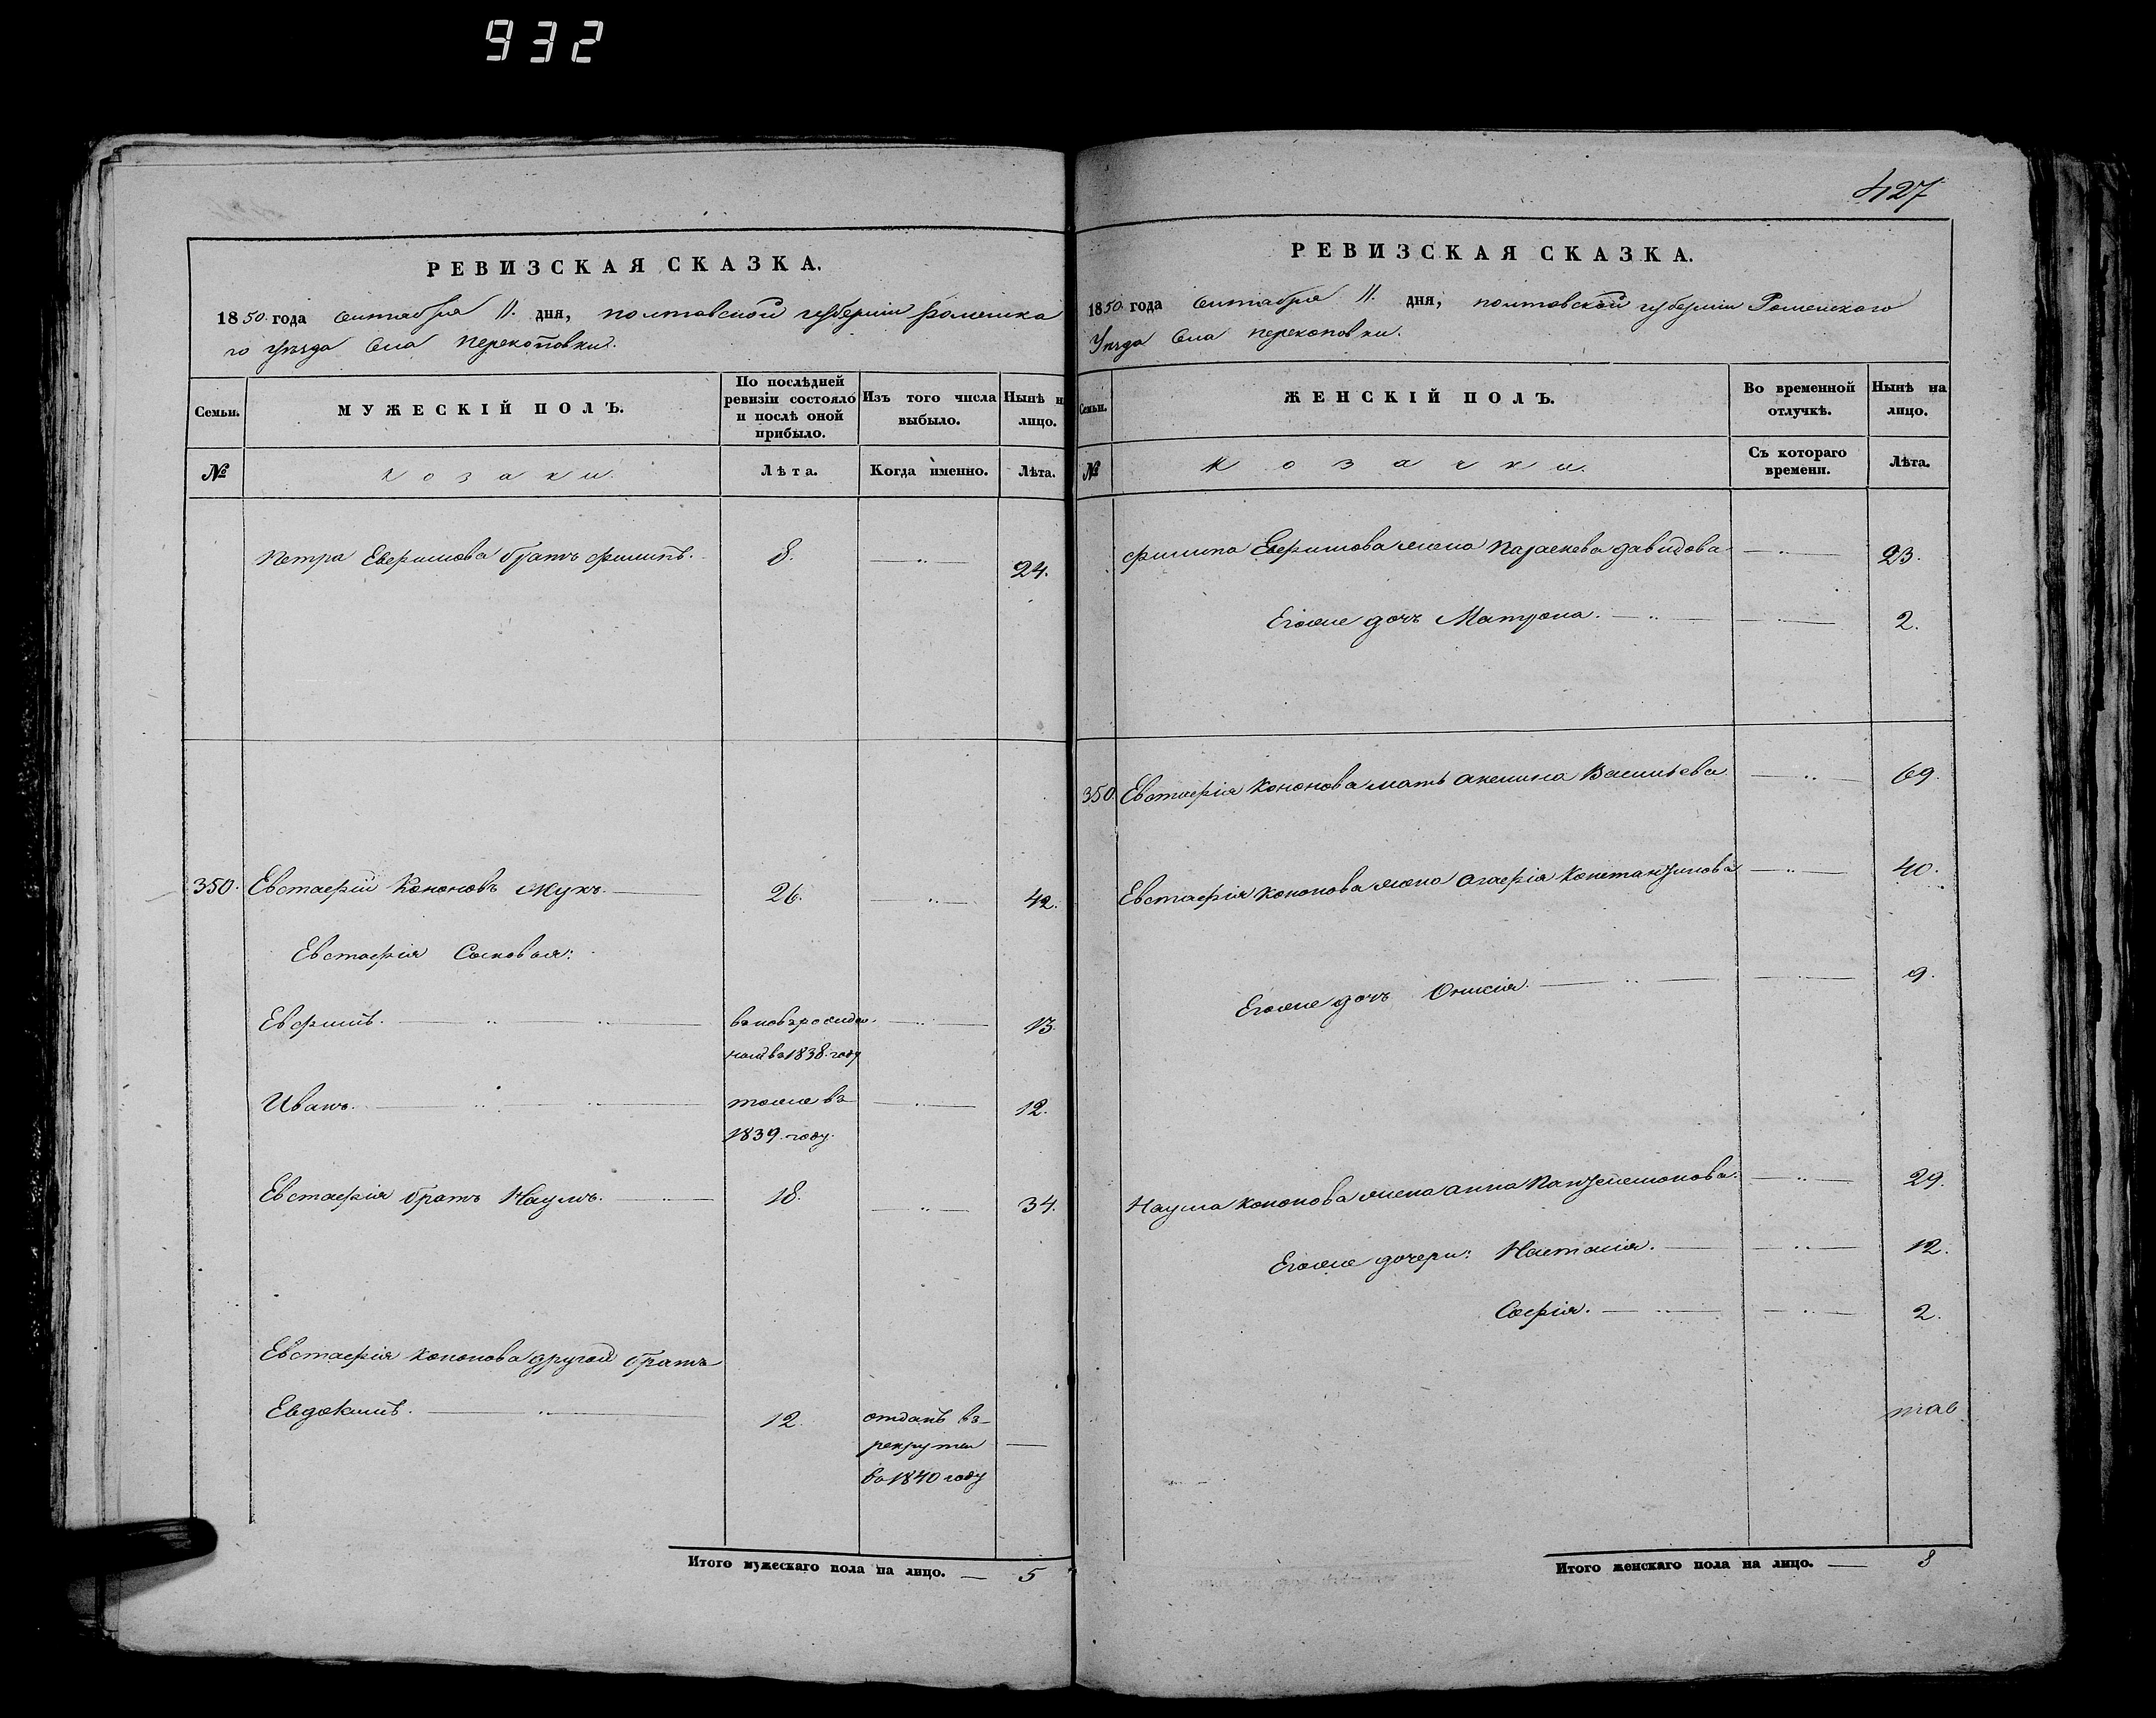 932
РЕВИЗСКАЯ СКАЗКА.
1850 года Сентября 11. дня, полтавской губернии Роменска
го уѣзда Села Перекоповки.
Семьи.
МУЖЕСКІЙ ПОЛЪ.
По послѣдней ревизіи состояло и послѣ оной прибыло.
Изъ того числа выбыло.
Нынѣ н лицо.
№
козаки.
Лѣта.
Когда именно.
Лѣта.
Петра Евфимова братъ Филипъ. 8. 24.
350. Евстафій Кононовъ Жукъ. 26. 42.
Евстафія Сыновья:
Евфимъ. 13.
ной въ 1838. году
Иванъ. тоже въ 12.
1839. году.
Евстафія братъ Наумъ. 18. 34.
Евстафія Кононова другой братъ
Евдокимъ. 12. отданъ въ
рекруты
въ 1840 году
Итого мужескаго пола на лицо. — 5
427
РЕВИЗСКАЯ СКАЗКА.
1850 года Сентября 11. дня, полтавской губернии Роменского
Уѣзда Села перекоповки.
Семьи.
ЖЕНСКІЙ ПОЛЪ.
Во временной отлучкѣ.
Нынѣ на лицо.
№
Козачки.
Съ котораго времени.
Лѣта.
Филипа Евфимова жена Параскева давидова 23.
Егоже дочь Матрона. 2.
350. Евстафія Кононова мать акилина Васильева 69.
Евстафія Кононова жена агафія Константинова 40.
Егоже дочь 9.
Наума Кононова жена анна Пантелемонова. 29.
Егоже дочери: Настасія. 12.
Софія. 2.
Итого женскаго пола на лицо. — 8